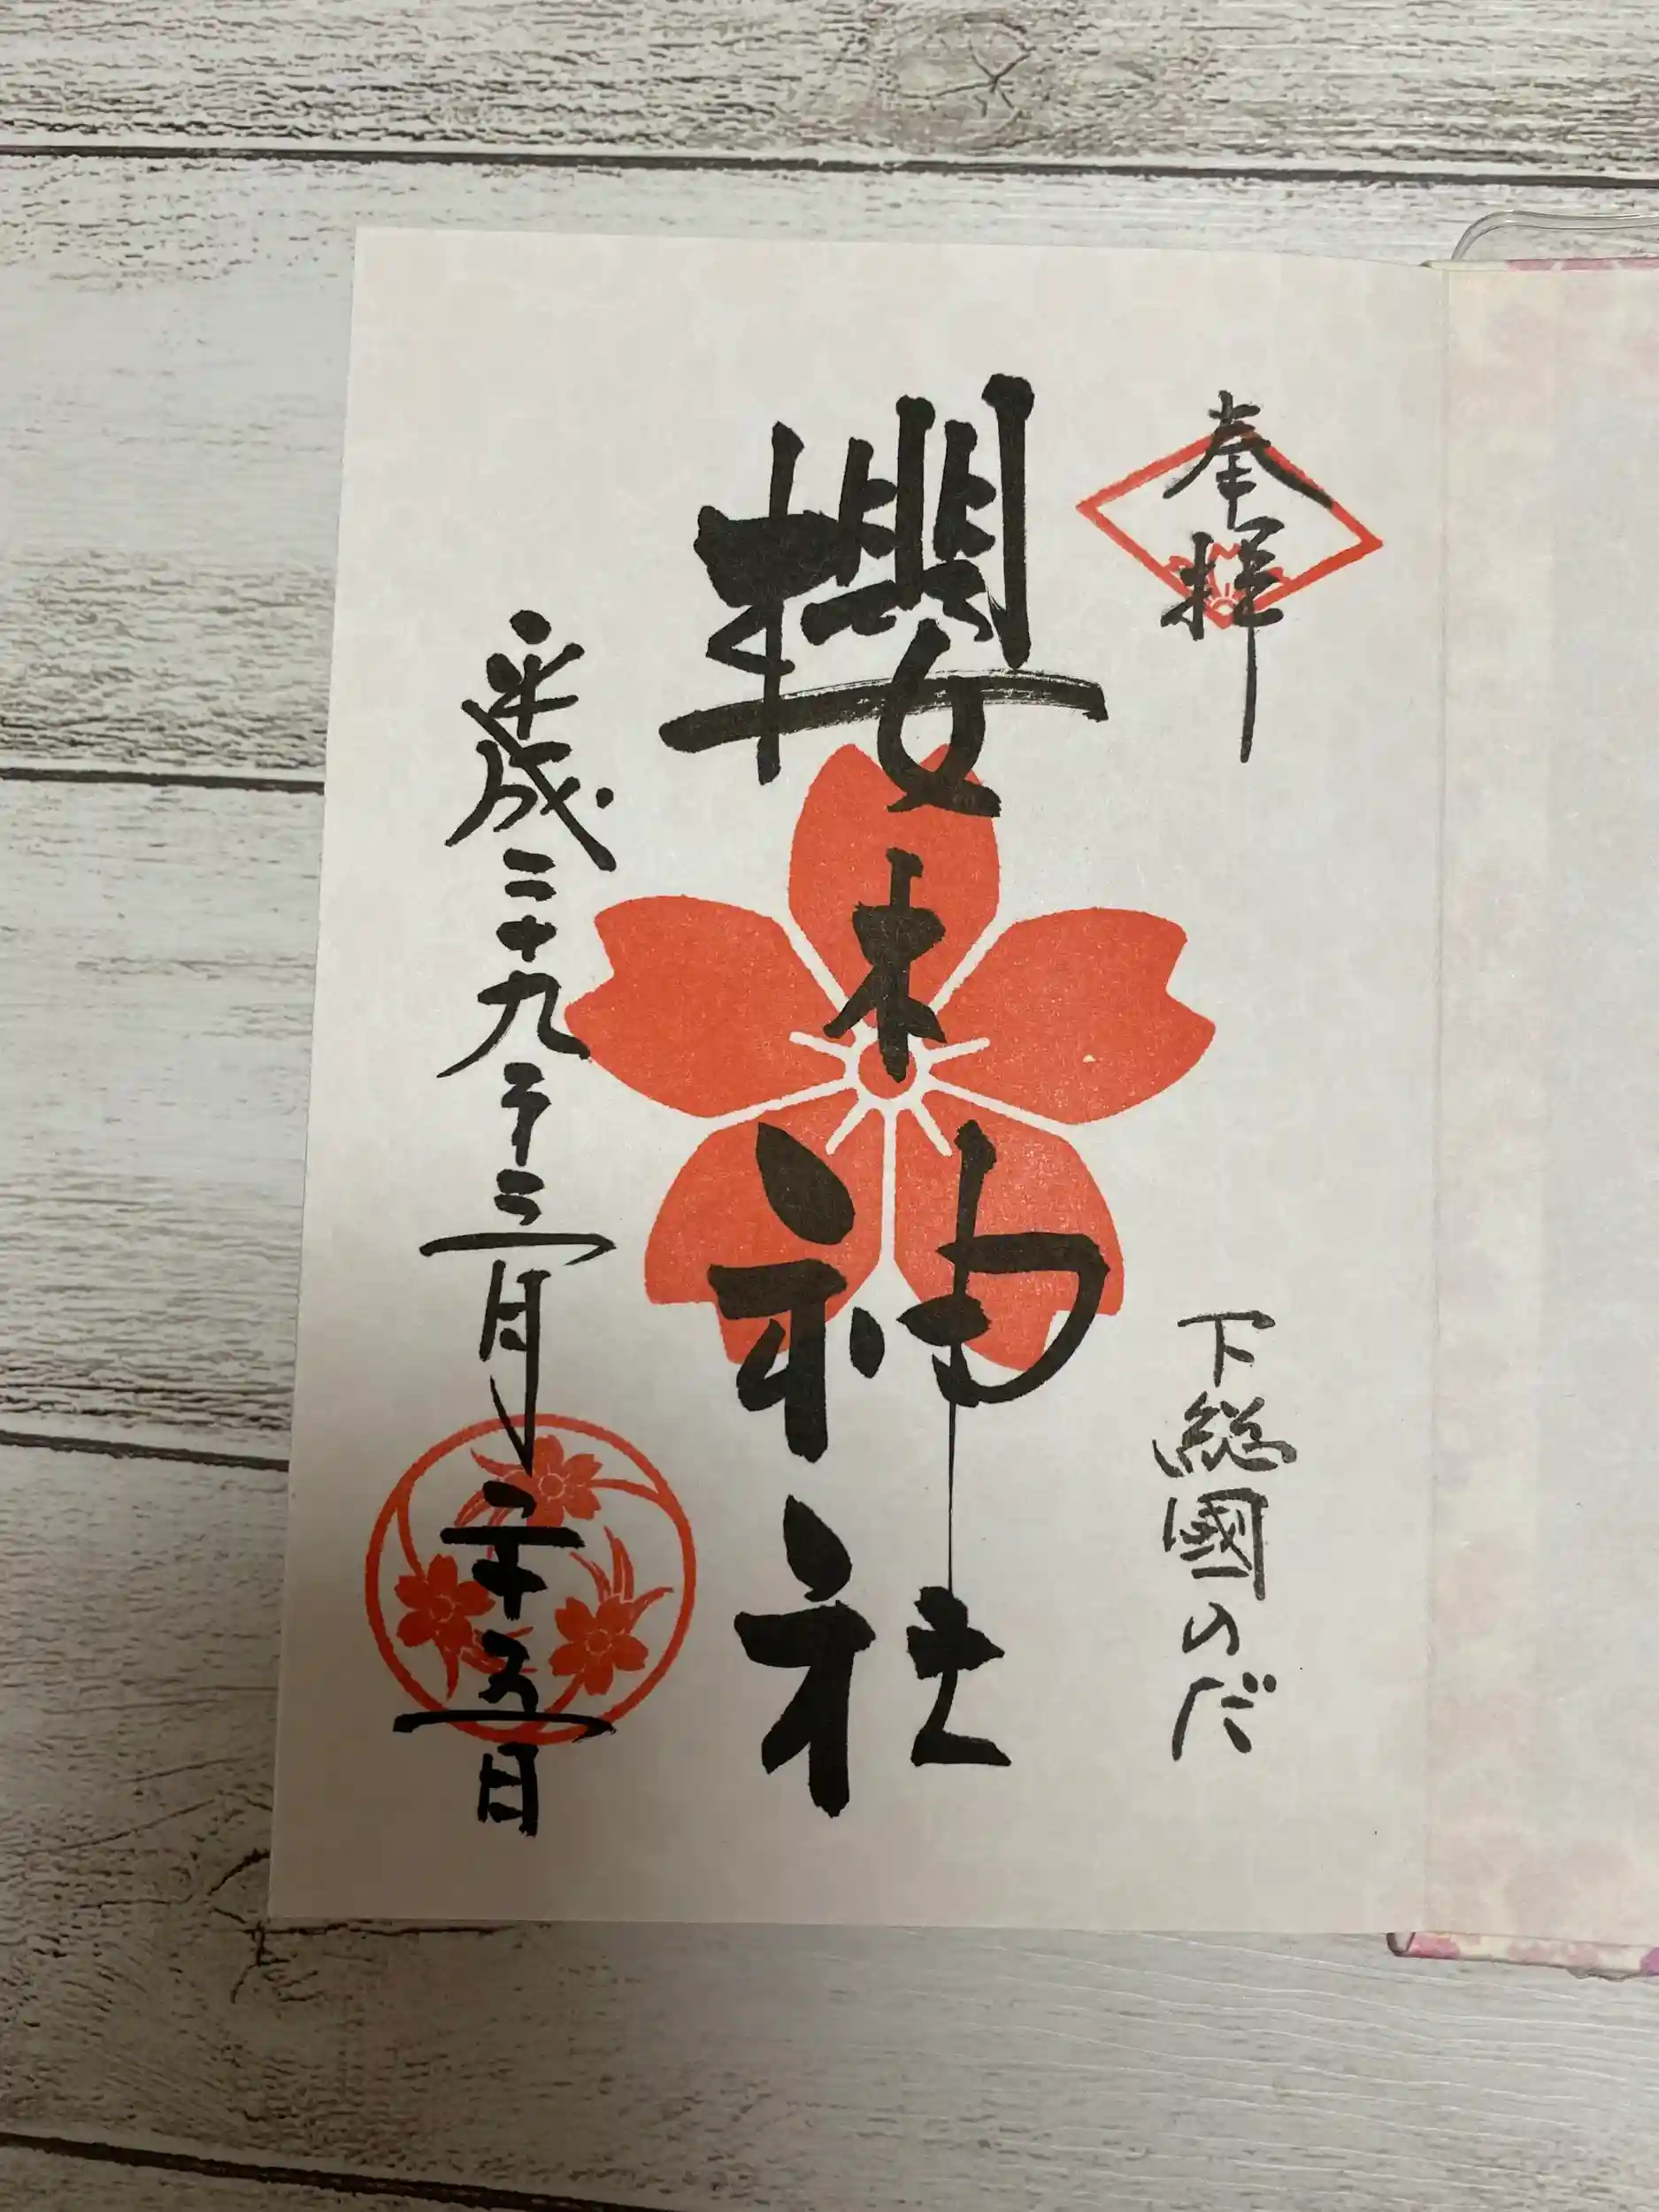 奉拝
下総國のだ
櫻木神社
平成二十九年三月二十五日